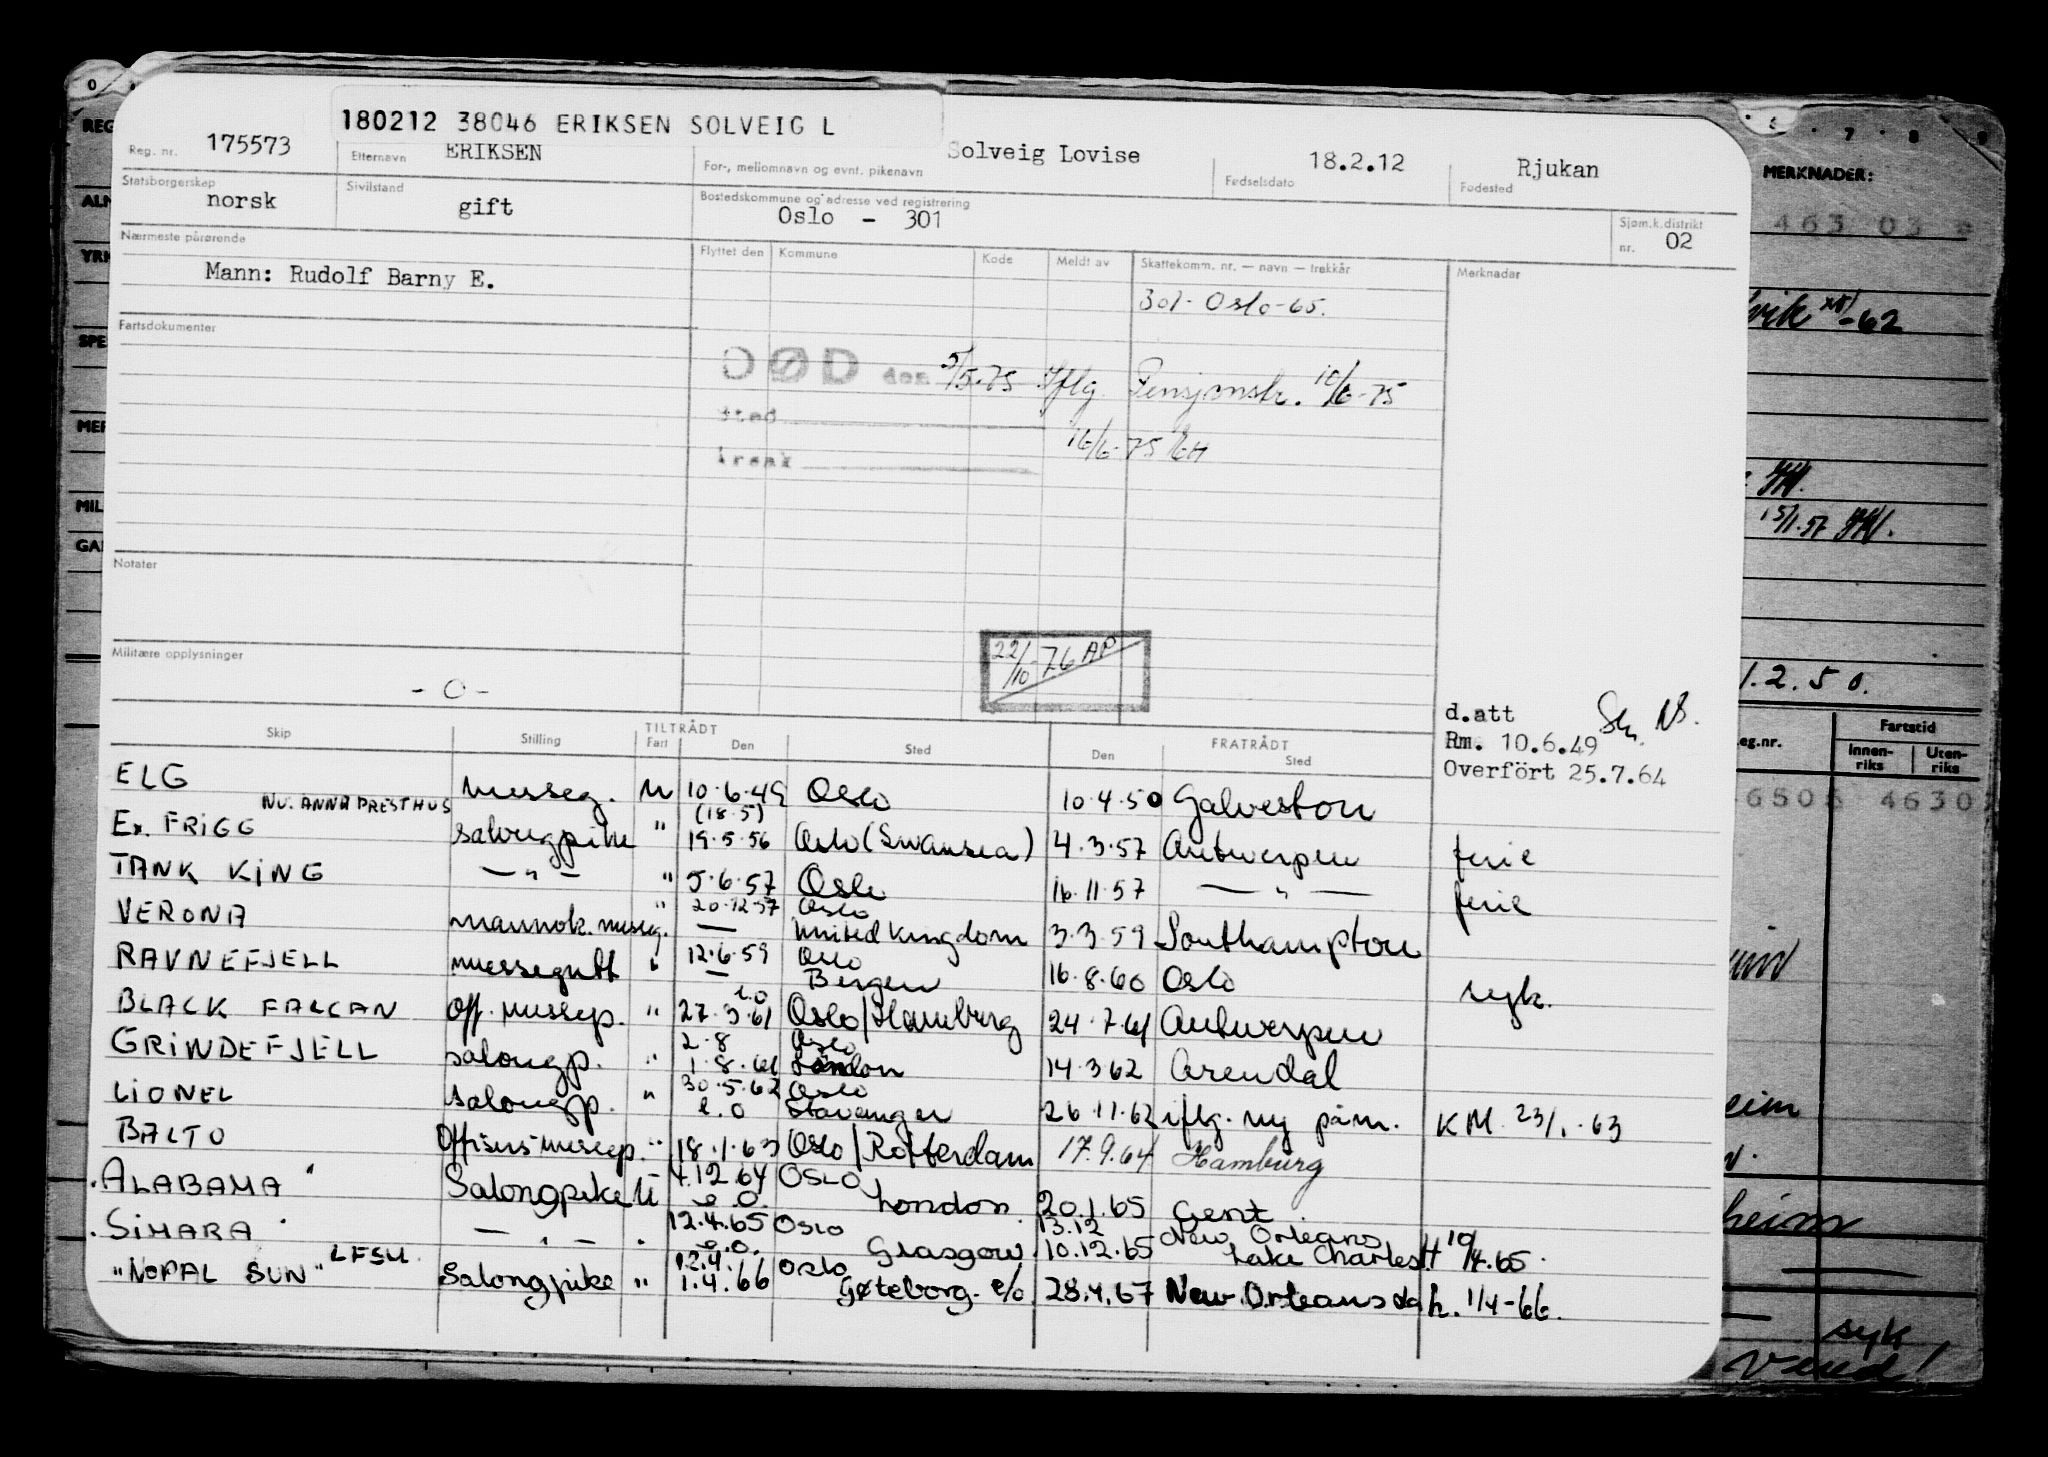 180212 38046 ERIKSEN SOLVEIG L
Reg. nr. 175573 Etternavn ERIKSEN For-, mellomnavn og evnt. pikenavn Solveig Lovise Fødselsdato 18.2.12 Fødested Rjukan
Statsborgerskap norsk Sivilstand gift Bostedskommune og adresse ved registrering Oslo - 301 Sjøm.k.distrikt nr. 02
Nærmeste pårørende Flyttet den Kommune Kode Meldt av Skattekomm. nr. — navn — trekkår Merknader
Mann: Rudolf Barny E.
301- Oslo-65.
Fartsdokumenter
DØD den 5/5-75 Iflg. Pensjonstr. 10/6-75
Sted
16/6-75 EH
Årsak
Notater
Militære opplysninger
- O -
22/10-76 AP
d.att
Rm. 10.6.49
Overfört 25.7.64
Skip Stilling TILTRÅDT Fart Den Sted FRATRÅDT Den Sted
ELG messeg. u 10.6.49 Oslo 10.4.50 Galveston
NU. ANNA PRESTHUS (18.5)
Ex. FRIGG salongpike " 19.5.56 Oslo (Swansea) 4.3.57 Antwerpen ferie
TANK KING — " — " 5.6.57 Oslo 16.11.57 — " — ferie
" 20.12.57 Oslo
VERONA mannsk. messeg. — United Kingdom 3.3.59 Southampton
RAVNEFJELL messegutt " 12.6.59 Oslo
— Bergen 16.8.60 Oslo syk.
BLACK FALCAN Off. messep. " 27.3.61 e.o Oslo/Hamburg 24.7.61 Antwerpen
2.8 Oslo
GRINDEFJELL salongp. " 1.8.61 London 14.3.62 Arendal
30.5.62 Oslo
LIONEL salongp. " e.o Stavanger 26.11.62 iflg. ny påm. KM 23/1.63
BALTO Offisersmessep. " 18.1.63 Oslo/Rotterdam 17.9.64 Hamburg
4.12.64 OSLO
"ALABAMA" Salongpike U e.o. London 20.1.65 Gent.
12.4.65 Oslo 13.12 New Orleans
"SIMARA" — " — " e.o. Glasgow. 10.12.65 Lake Charles H 10/4.65.
12.4. Oslo
"NOPAL SUN" LFSU Salongpike " 1.4.66 Gøteborg. e/o 28.4.67 New Orleans da h. 1/4-66.
0
REG
ALM
YRK
SPE
MER
MIL
6 7 8 9
MERKNADER:
463 03
-62
15/1.57
1.2.50.
eg.nr. Fartstid
Innen-riks Uten-riks
4630
eim
heim
syk
Vend!